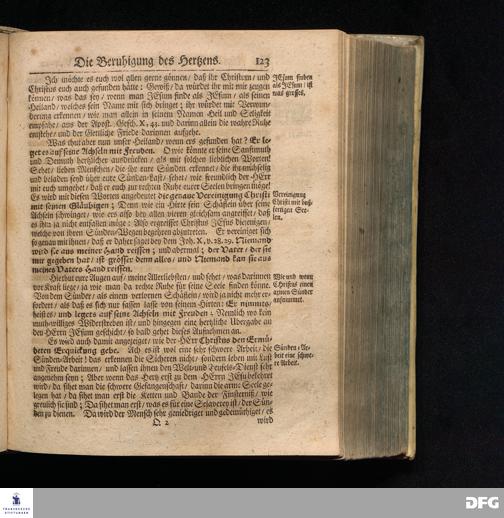 Die Beruhigung des Hertzens. 123
Ich möchte es euch wol allen gerne gönnen / daß ihr Christum / und
Christus euch auch gefunden hätte: Gewiß / da würdet ihr mit mir zeugen
können / was das sey / wenn man JEsum finde als JEsum / als seinen
Heiland / welches sein Name mit sich bringet; ihr würdet mit Verwun-
derung erkennen / wie man allein in seinem Namen Heil und Seligkeit
empfahe / aus der Apost. Gesch. X, 43. und darinn allein die wahre Ruhe
entstehe / und der Göttliche Friede darinnen aufgehe.
Was thut aber nun unser Heiland / wenn ers gefunden hat? Er le-
get es auf seine Achseln mit Freuden. O wie könnte er seine Sanftmuth
und Demuth hertzlicher ausdrücken / als mit solchen lieblichen Worten!
Sehet / lieben Menschen / die ihr eure Sünden erkennet / die ihr mühselig
und beladen seyd über eure Sünden-Last / sehet / wie freundlich der HErr
mit euch umgehet / daß er euch zur rechten Ruhe eurer Seelen bringen möge!
Es wird mit diesen Worten angedeutet die genaue Vereinigung Christi
mit seinen Gläubigen; Denn wie ein Hirte sein Schäflein über seine
Achseln schwinget / wie ers also bey allen vieren gleichsam angreiffet / daß
es ihm ja nicht entfallen möge: Also ergreiffet Christus JEsus diejenigen /
welche von ihren Sünden-Wegen begehren abzutreten. Er vereiniget sich
so genau mit ihnen / daß er daher saget bey dem Joh. X, v. 28. 29. Niemand
wird sie aus meiner Hand reissen; und abermal: der Vater / der sie
mir gegeben hat / ist grösser denn alles / und Niemand kan sie aus
meines Vaters Hand reissen.
Hiebey eure Augen auf / meine Allerliebsten / und sehet / was darinnen
vor Kraft liege / ja wie man da rechte Ruhe für seine Seele finden könne.
Von dem Sünder / als einem verlornen Schäflein / wird ja nicht mehr er-
fordert / als daß es sich nur fassen lasse von seinem Hirten: Er nimmts,
heist es / und legets auf seine Achseln mit Freuden; Nemlich wo kein
muth-williges Widerstreben ist / und hingegen eine hertzliche Ubergabe an
den HErrn JEsum geschicht / so bald gehet dieses Aufnehmen an.
Es wird auch damit angezeiget / wie der HErr Christus den Ermü-
deten Erquickung gebe. Ach es ist wol eine sehr schwere Arbeit / die
Sünden-Arbeit! das erkennen die Sichern nicht / sondern leben mit Lust
und Freude darinnen / und lassen ihnen den Welt- und Teufels-Dienst sehr
angenehm seyn; Aber wenn das Hertz erst zu dem HErrn JEsu bekehret
wird / da sihet man die schwere Gefangenschaft / darinn die arme Seele ge-
legen hat / da sihet man erst die Ketten und Bande der Finsterniß / wie
greulich sie sind; Da sihet man erst / was es für eine Sclaverey ist / der Sün-
den zu dienen. Da wird der Mensch sehr geniedriget und gedemüthiget / es
Q 2 wird
JEsum finden
als JEsum / ist
was grosses.
Vereinigung
Christi mit buß-
fertigen See-
len.
Wie und wenn
Christus einen
armen Sünder
aufnimmt.
Sünden-Ar-
beit eine schwe-
re Arbeit.
FRANCKESCHE
STIFTUNGEN
DFG